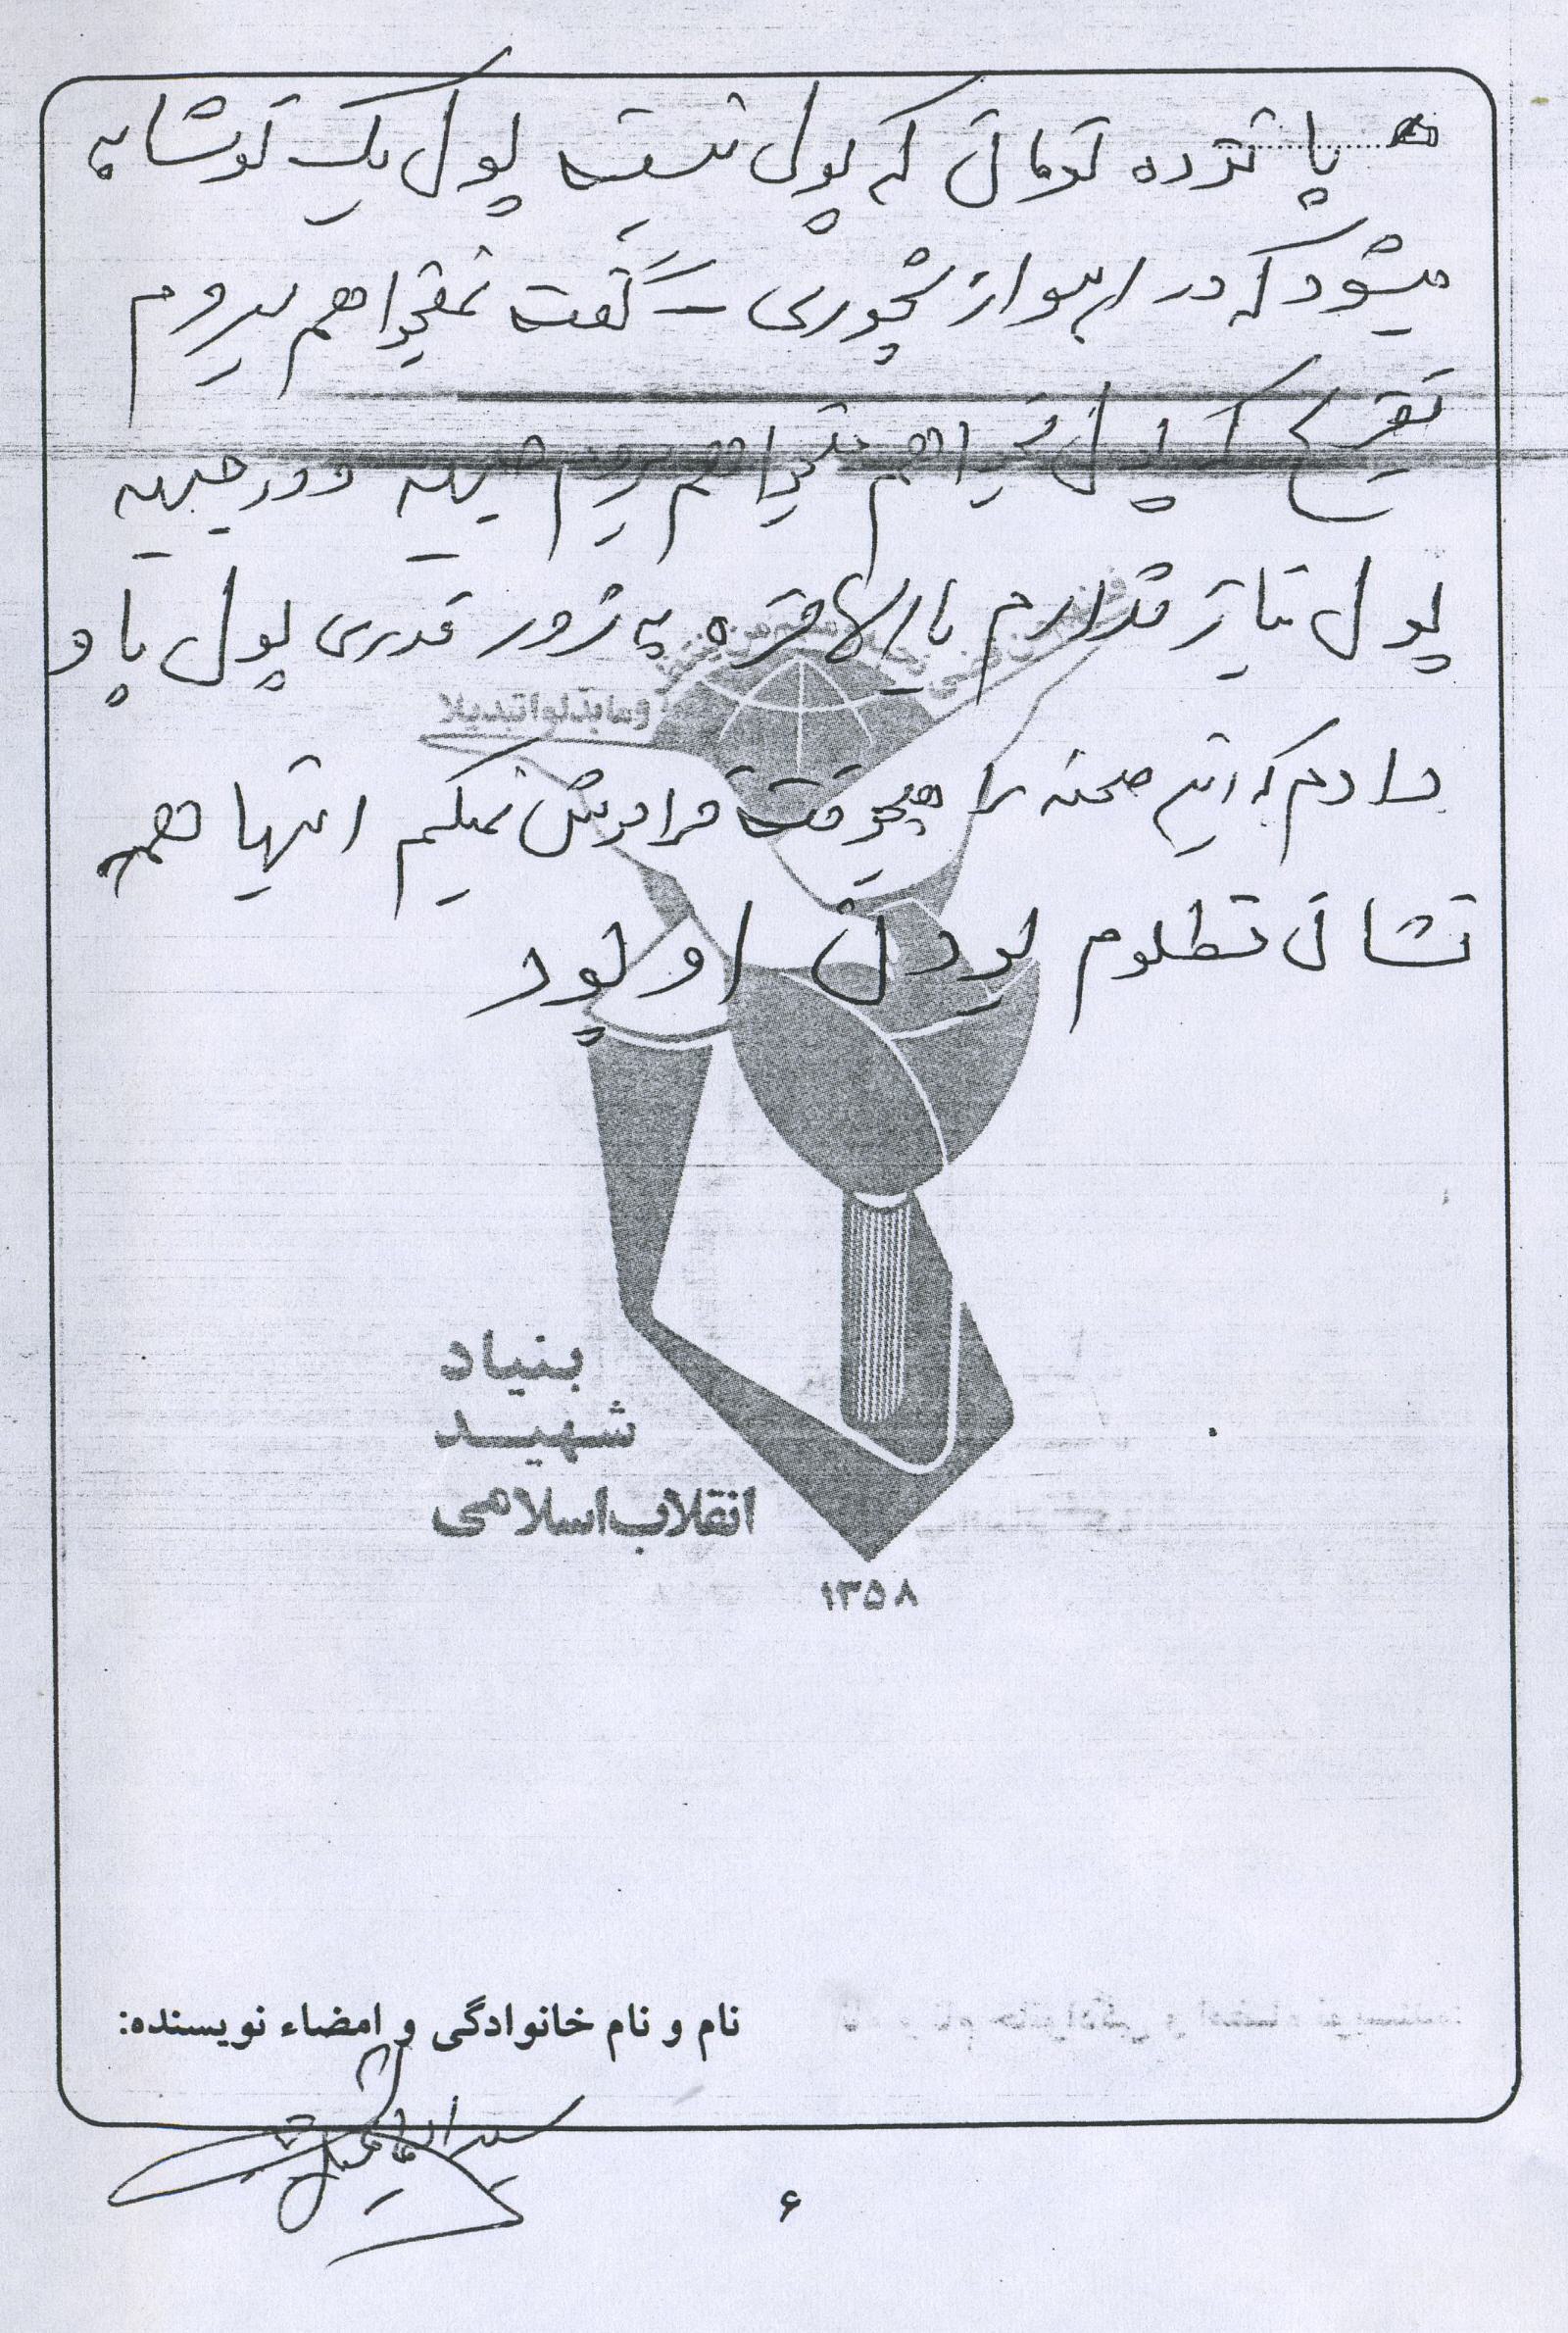 پانزده تومان که پول نیست پول یک نوشابه
میشود که در اهواز بخوری - گفت نمیخواهم بروم
تفریح که پول بخواهم میخواهم بروم جبهه و در جبهه
پول نیاز ندارم بالاخره به زور قدری پول باو
دادم که این صحنه را هیچوقت فراموش نمیکنم اینها همه
نشان مظلوم بودن او بود
وما بدلوا تبدیلا
بنیاد
شهید
انقلاب اسلامی
۱۳۵۸
نام و نام خانوادگی و امضاء نویسنده:
۶